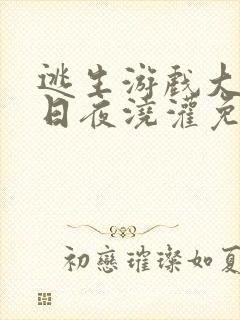 逃生游戏大
日夜浇灌免
初戀璀璨如夏